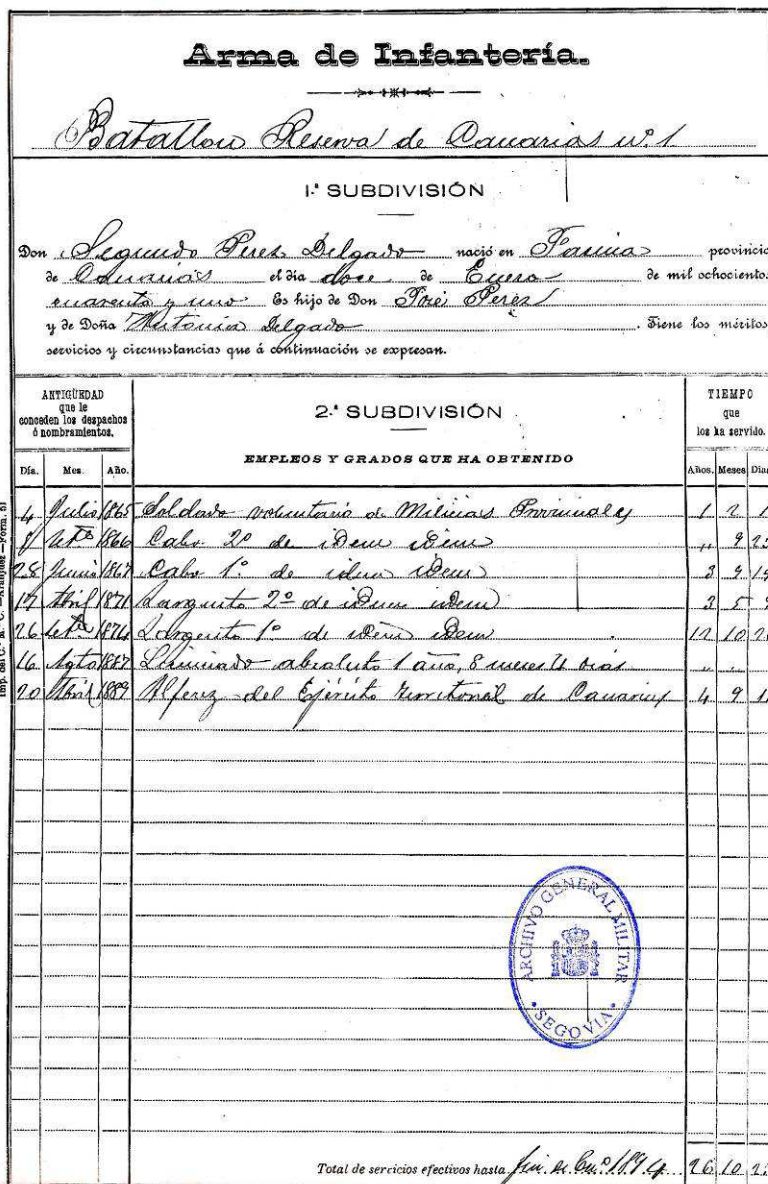 Arma de Infantería.
Batallon Reserva de Canarias nº. 1
1.ª SUBDIVISIÓN
Don Segundo Perez Delgado nació en provincia
de Canarias el día doce de Enero de mil ochocientos
cuarenta y uno Es hijo de Don José Perez
y de Doña Antonia Delgado. Tiene los méritos,
servicios y circunstancias que á continuación se expresan.
ANTIGÜEDAD
que le
conceden los despachos
ó nombramientos.
2.ª SUBDIVISIÓN
EMPLEOS Y GRADOS QUE HA OBTENIDO
TIEMPO
que
los ha servido.
Día. Mes. Año. Años. Meses Días
4 Julio 1865 Soldado voluntario de Milicias Provinciales 1 2
Sete 1866 Cabo 2º de idem idem „ 9
28 Junio 1867 Cabo 1º de idem idem 3 9
17 Abril 1871 Sargento 2º de idem idem 3 5
26 Sete 1874 Sargento 1º de idem idem 12 10
16 Agto 1887 Licenciado absoluto 1 año, 8 meses 4 dias „ „
20 Abril 1889 Alferez del Ejército territorial de Canarias 4 9
ARCHIVO GENERAL MILITAR
• SEGOVIA •
Total de servicios efectivos hasta fin de Enº 1894 26 10